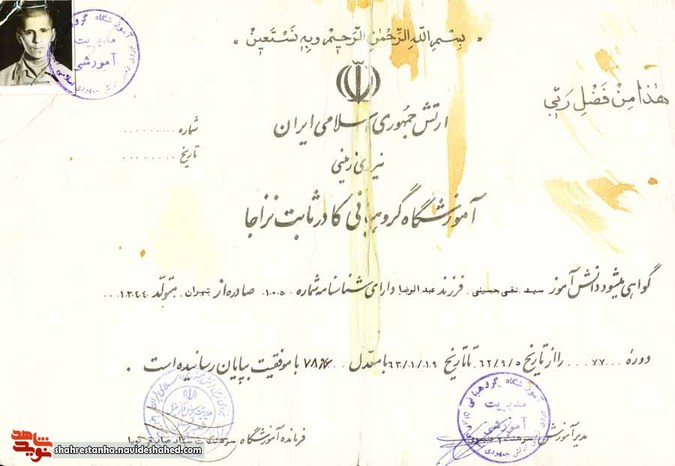 بسم الله الرحمن الرحیم و به نستعین
هذا من فضل ربی
ارتش جمهوری اسلامی ایران
نیروی زمینی
شماره ..........
تاریخ ..........
آموزشگاه گروهبانی کادر ثابت نزاجا
گواهی میشود دانش آموز سید تقی حسینی فرزند عبدالرضا دارای شناسنامه شماره ۱۰۰۵ صادره از تهران متولد ۱۳۴۴
دوره ۷۷ را از تاریخ ۶۲/۹/۵ تا تاریخ ۶۳/۱/۱۹ با معدل با موفقیت بپایان رسانیده است .
مدیر آموزش
فرمانده آموزشگاه
مدیریت
آموزشی
مدیریت
آموزشی
شاهد
نوید
shahrestanha.navideshahed.com